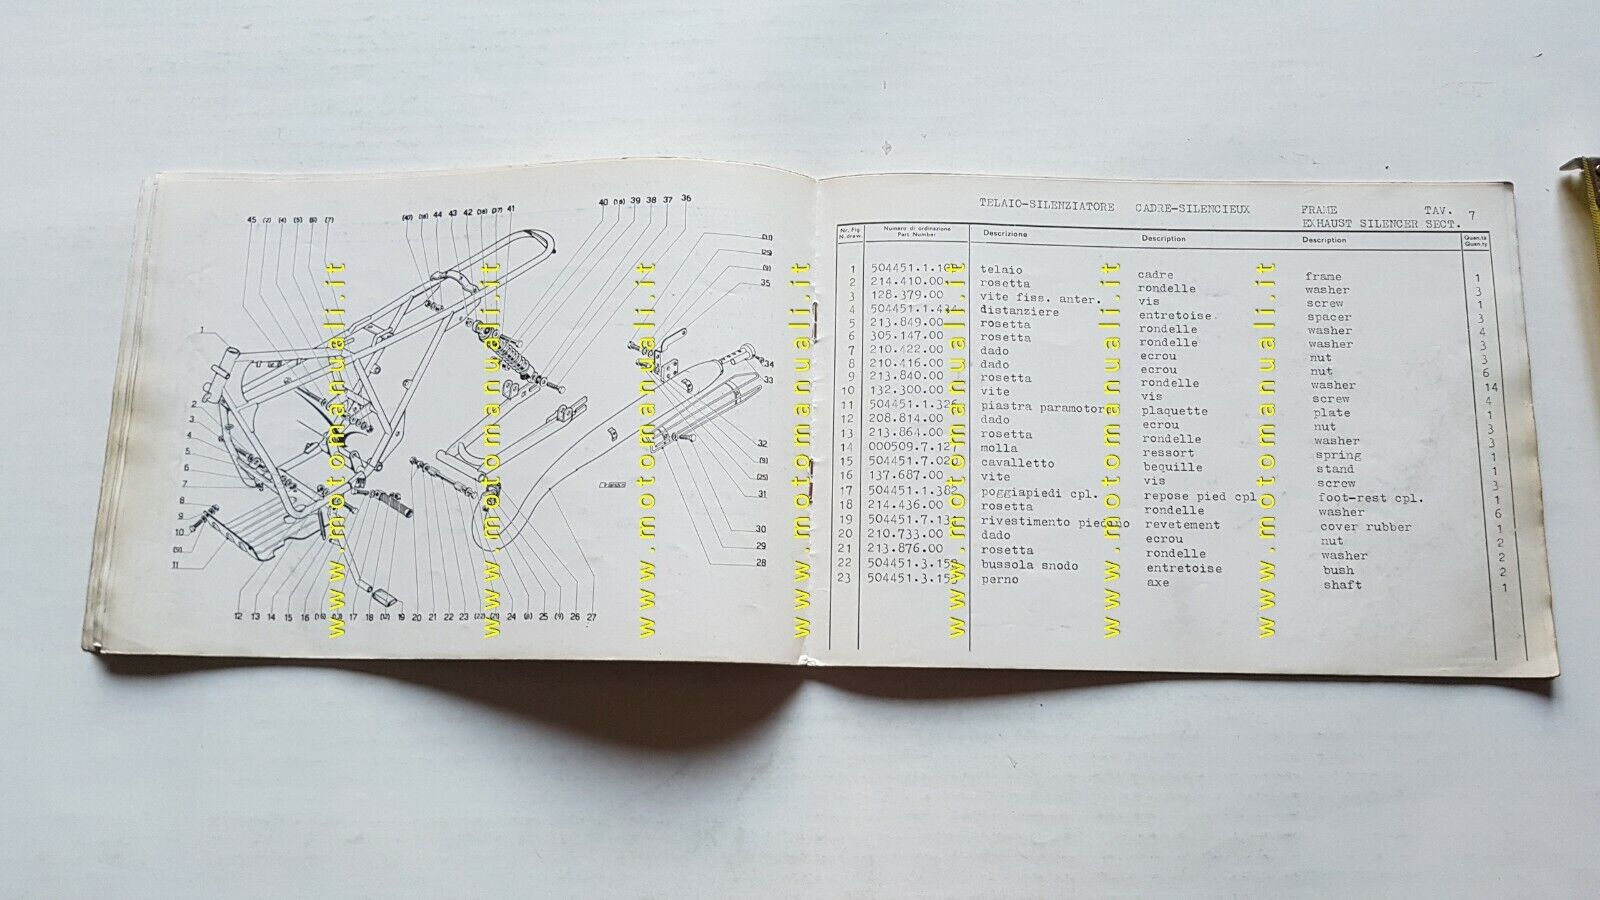 45 (2) (4) (5) (6) (7)
(47) (18) 44 43 42 (38) (37) 41
40 (18) 39 38 37 36
35
34
33
32
(9)
(25)
31
30
29
28
1
2
3
4
5
6
7
8
9
10
(9)
11
12 13 14 15 16 17 18 19 20 21 22 23 24 (6) 25 (9) 26 27
TELAIO-SILENZIATORE CADRE-SILENCIEUX FRAME TAV. 7
EXHAUST SILENCER SECT.
Nr. Fig. Numero di ordinazione Descrizione Description Description Quan.tà
N. draw. Part Number Quan.ty
1 504451.1. telaio cadre frame 1
2 214.410.00 rosetta rondelle washer 3
3 128.379.00 vite fiss. anter. vis screw 1
4 504451.1. distanziere entretoise spacer 3
5 213.849.00 rosetta rondelle washer 4
6 305.147.00 rosetta rondelle washer 3
7 210.422.00 dado ecrou nut 3
8 210.416.00 dado ecrou nut 6
9 213.840.00 rosetta rondelle washer 14
10 132.300.00 vite vis screw 4
11 504451.1.326 piastra paramotore plaquette plate 1
12 208.814.00 dado ecrou nut 3
13 213.864.00 rosetta rondelle washer 3
14 000509.7.127 molla ressort spring 1
15 504451.7.020 cavalletto bequille stand 1
16 137.687.00 vite vis screw 3
17 504451.1.382 poggiapiedi cpl. repose pied cpl. foot-rest cpl. 1
18 214.436.00 rosetta rondelle washer 6
19 504451.7. rivestimento piedino revetement cover rubber 1
20 210.733.00 dado ecrou nut 2
21 213.876.00 rosetta rondelle washer 2
22 504451.3. bussola snodo entretoise bush 2
23 504451.3. perno axe shaft 1
www.motomanuali.it
www.motomanuali.it
www.motomanuali.it
www.motomanuali.it
www.motomanuali.it
www.motomanuali.it
www.motomanuali.it